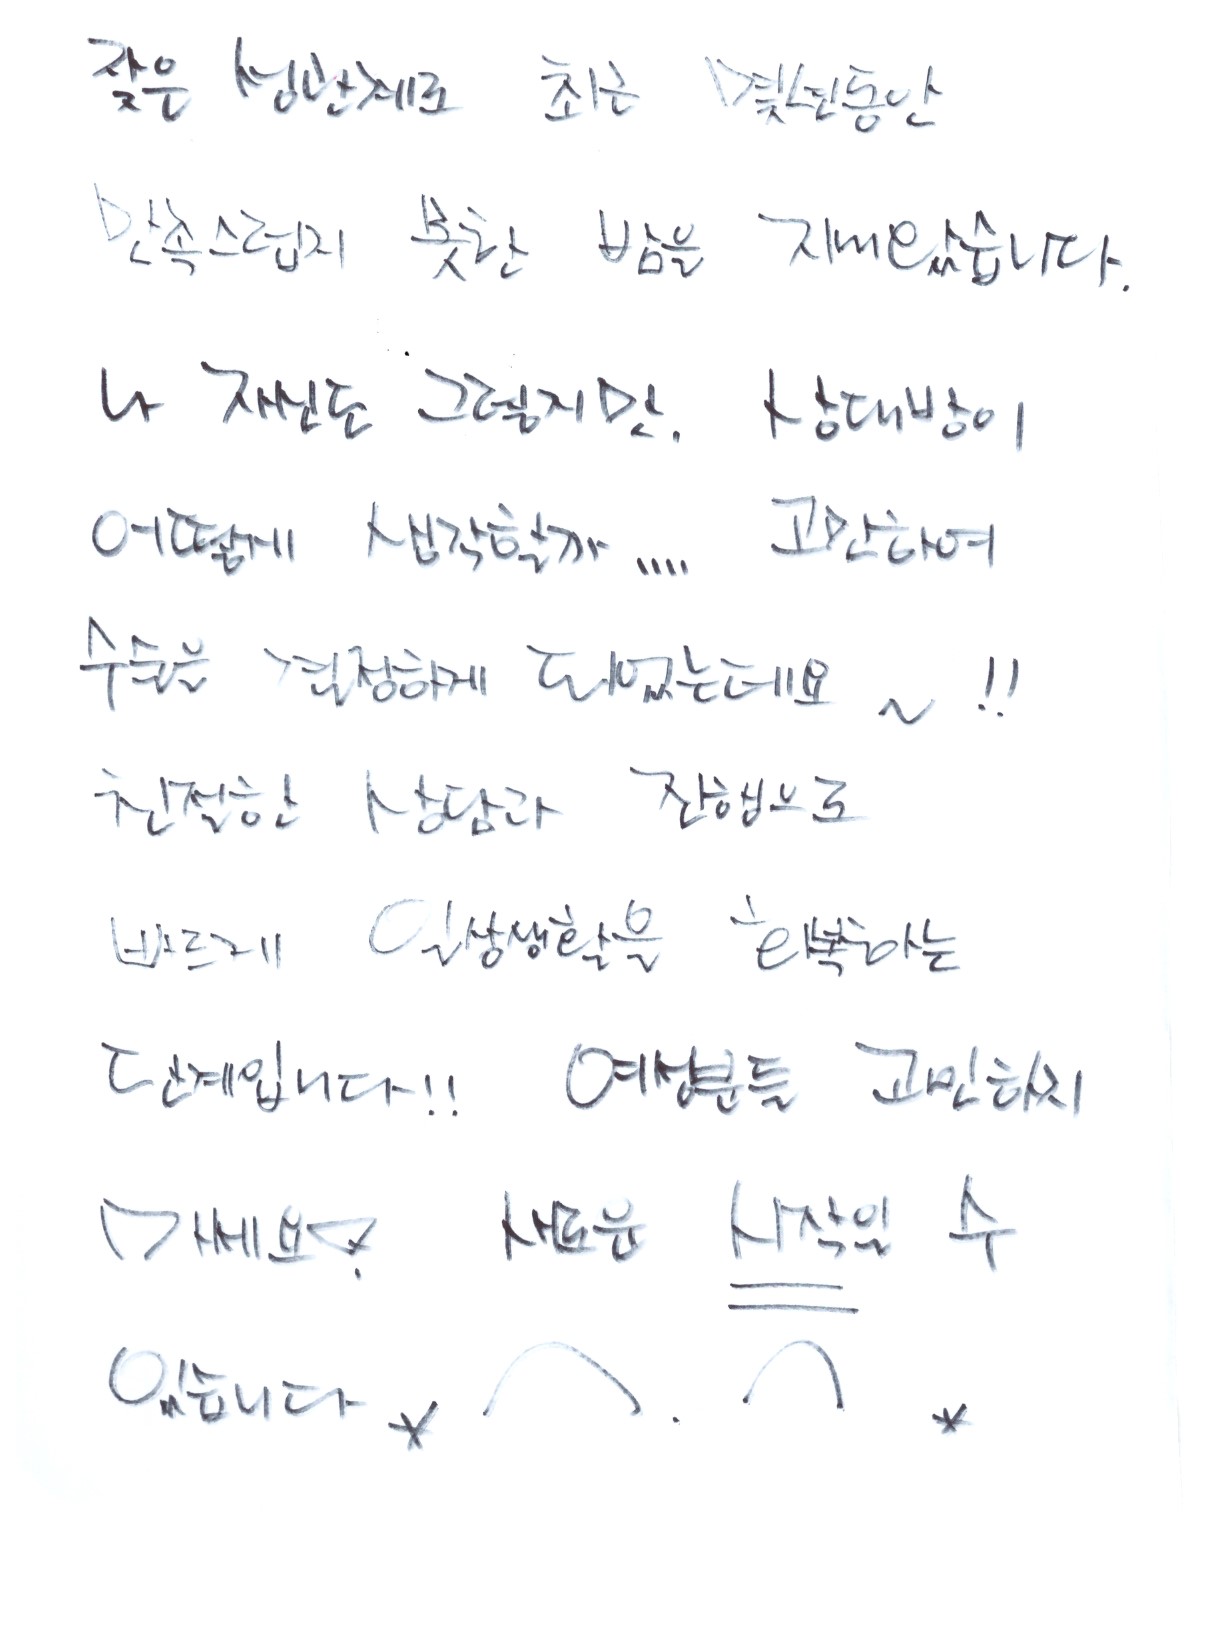 잦은 성관계로 최근 몇년동안
만족스럽지 못한 밤을 지새왔습니다.
나 자신도 그렇지만, 상대방이
어떻게 생각할까,,,, 고민하여
수술을 결정하게 되었는데요~!!
친절한 상담과 진행으로
빠르게 일상생활을 회복하는
단계입니다!! 여성분들 고민하지
마세요. 새로운 시작일 수
있습니다 * ⌒.⌒ *